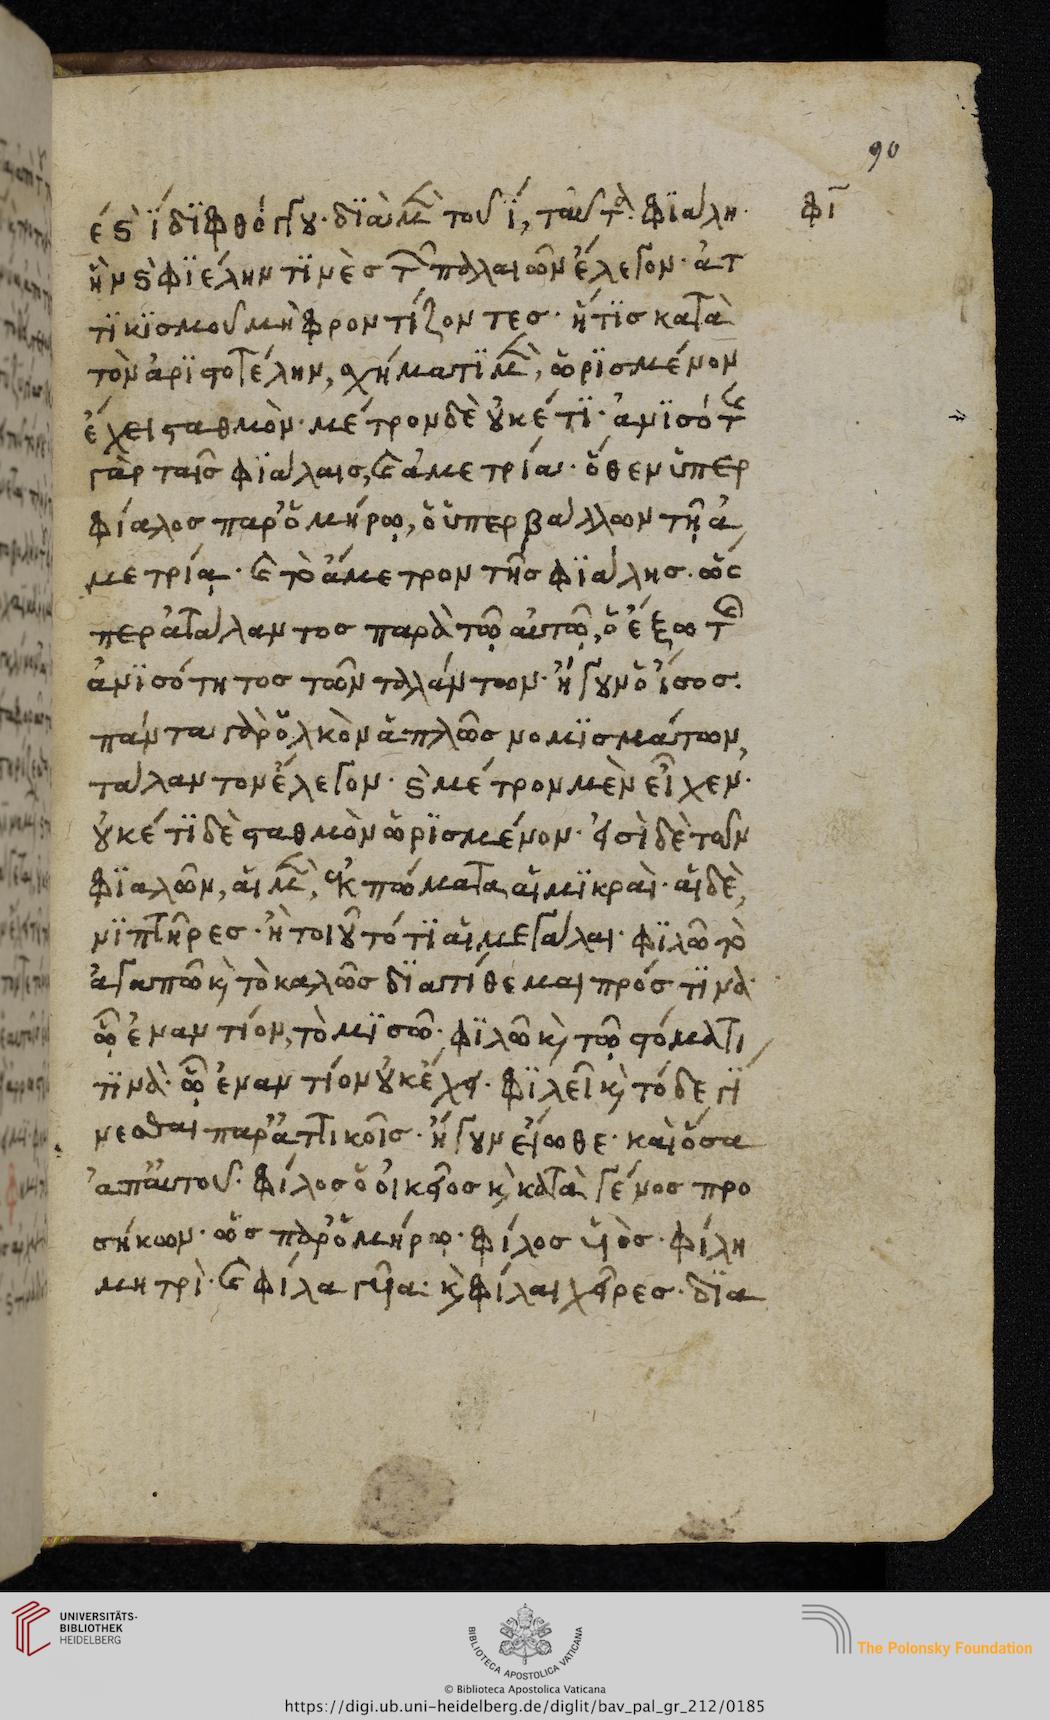 90
φῑ
ἐ καὶ ῑ διφθόγγου· διὰ μὲν τοῦ ῑ, ταῦτα· φϊάλη·
ἣν καὶ φϊέλην τϊνὲς τῶν παλαιῶν ἔλεγον· ἀτ
τϊκϊσμοῦ μὴ φροντίζοντες· ἥτϊς κατὰ
τὸν ἀρϊστοτέλην, σχήματϊ μὲν, ὡρϊσμένον
ἔχει σταθμὸν· μέτρον δὲ οὐκέτϊ· ἀνϊσότης
γὰρ ταῖς φϊάλαις, καὶ ἀμετρία· ὅθεν ὑπερ
φίαλος παρ' ὁμήρῳ, ὁ ὑπερβάλλων τῇ ἀ
μετρίᾳ· καὶ τὸ ἄμετρον τῆς φϊάλης· ὥς
περ ἀτάλαντος παρὰ τῷ αὐτῷ, ὁ ἔξω τῆς
ἀνϊσότητος τῶν ταλάντων· ἤγουν ὁ ἴσος·
πάντα γὰρ ὁλκὸν ἁπλῶς νομϊσμάτων,
τάλαντον ἔλεγον· καὶ μέτρον μὲν εἶχεν·
οὐκέτϊ δὲ σταθμὸν ὡρϊσμένον· εἰσὶ δὲ τῶν
φϊαλῶν, αἱ μὲν, ἐκπώματα αἱ μϊκραὶ· αἱ δὲ,
νϊπτῆρες· ἢ τοιοῦτό τϊ αἱ μεγάλαι· φϊλῶ τὸ
ἀγαπῶ καὶ τὸ καλῶς δϊατίθεμαι πρός τϊνα·
ᾧ ἐναντίον, τὸ μϊσῶ· φϊλῶ καὶ τῷ στόματι
τϊνὰ· ᾧ ἐναντίον οὐκ ἔχει· φϊλεῖ καὶ τόδε γί
νεσθαι παρ' ἀττικοῖς· ἤγουν εἴωθε· καὶ ὅσα
ἀπ' αὐτοῦ· φίλος ὁ οἰκεῖος καὶ κατὰ γένος προ
σήκων· ὡς παρ' ὁμήρῳ· φίλος υἱὸς· φίλη
μητρὶ· καὶ φίλα γυῖα· καὶ φίλαι χεῖρες· δϊα
UNIVERSITÄTS-
BIBLIOTHEK
HEIDELBERG
BIBLIOTECA APOSTOLICA VATICANA
The Polonsky Foundation
© Biblioteca Apostolica Vaticana
https://digi.ub.uni-heidelberg.de/diglit/bav_pal_gr_212/0185